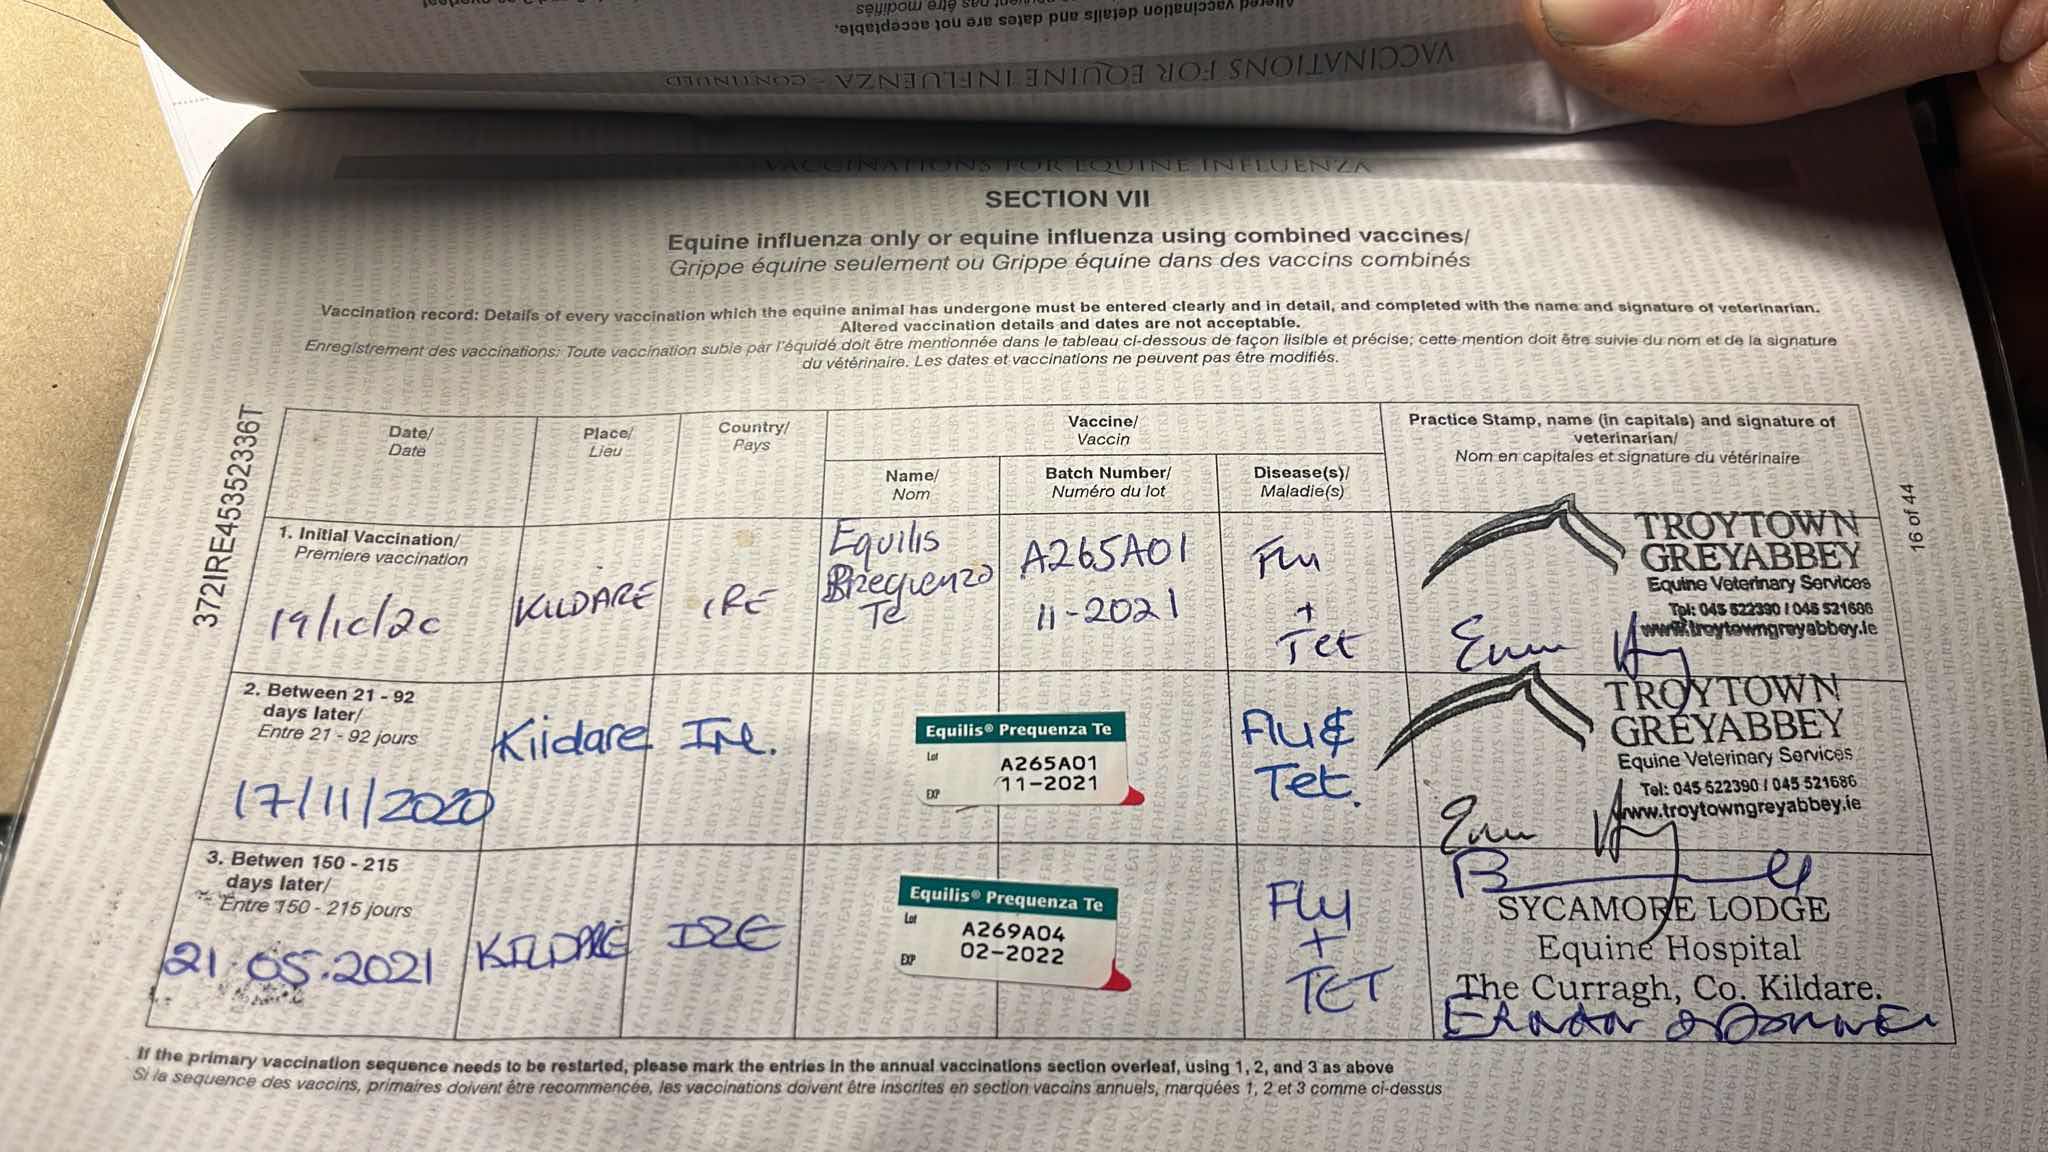 Altered vaccination details and dates are not acceptable.
VACCINATIONS FOR EQUINE INFLUENZA - CONTINUED
VACCINATIONS FOR EQUINE INFLUENZA
SECTION VII
Equine influenza only or equine influenza using combined vaccines/
Grippe équine seulement ou Grippe équine dans des vaccins combinés
Vaccination record: Details of every vaccination which the equine animal has undergone must be entered clearly and in detail, and completed with the name and signature of veterinarian.
Altered vaccination details and dates are not acceptable.
Enregistrement des vaccinations: Toute vaccination subie par l'équidé doit être mentionnée dans le tableau ci-dessous de façon lisible et précise; cette mention doit être suivie du nom et de la signature
du vétérinaire. Les dates et vaccinations ne peuvent pas être modifiés.
372IRE453523336T
16 of 44
Date/
Date
Place/
Lieu
Country/
Pays
Vaccine/
Vaccin
Name/
Nom
Batch Number/
Numéro du lot
Disease(s)/
Maladie(s)
Practice Stamp, name (in capitals) and signature of
veterinarian/
Nom en capitales et signature du vétérinaire
1. Initial Vaccination/
Premiere vaccination
19/10/20
KILDARE
IRE
Equilis
Prequenza
Te
A265A01
11-2021
Flu
+
Tet
TROYTOWN
GREYABBEY
Equine Veterinary Services
Tel: 045 522390 / 045 521686
www.troytowngreyabbey.ie
2. Between 21 - 92
days later/
Entre 21 - 92 jours
17/11/2020
Kildare
Ire.
Equilis® Prequenza Te
Lot A265A01
EXP 11-2021
Flu &
Tet.
TROYTOWN
GREYABBEY
Equine Veterinary Services
Tel: 045 522390 / 045 521686
www.troytowngreyabbey.ie
3. Betwen 150 - 215
days later/
Entre 150 - 215 jours
21.05.2021
KILDARE
IRE
Equilis® Prequenza Te
Lot A269A04
EXP 02-2022
Flu
+
TET
SYCAMORE LODGE
Equine Hospital
The Curragh, Co. Kildare.
If the primary vaccination sequence needs to be restarted, please mark the entries in the annual vaccinations section overleaf, using 1, 2, and 3 as above
Si la sequence des vaccins, primaires doivent être recommencée, les vaccinations doivent être inscrites en section vaccins annuels, marquées 1, 2 et 3 comme ci-dessus